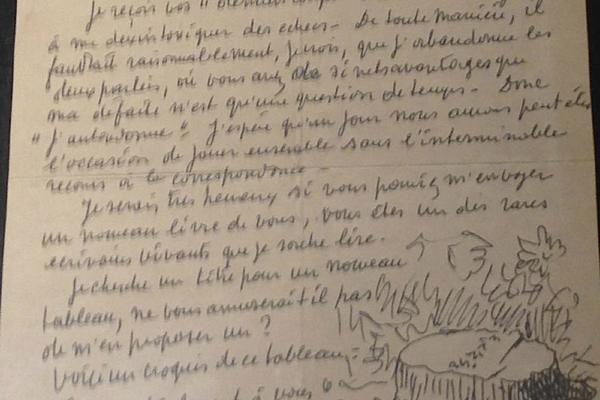 Je reçois vos "
à me désintoxiquer des échecs - De toute manière, il
faudrait raisonnablement, je crois, que j'abandonne les
deux parties, où vous avez de si nets avantages que
ma défaite n'est qu'une question de temps - Donc
"J'abandonne". J'espère qu'un jour nous aurons peut être
l'occasion de jouer ensemble sans l'interminable
recours à la correspondance -
Je serais très heureux si vous pouviez m'envoyer
un nouveau livre de vous, vous êtes un des rares
écrivains vivants que je sache lire.
Je cherche un titre pour un nouveau
tableau, ne vous amuserait il pas
de m'en proposer un ?
Voici un croquis de ce tableau :
à vous